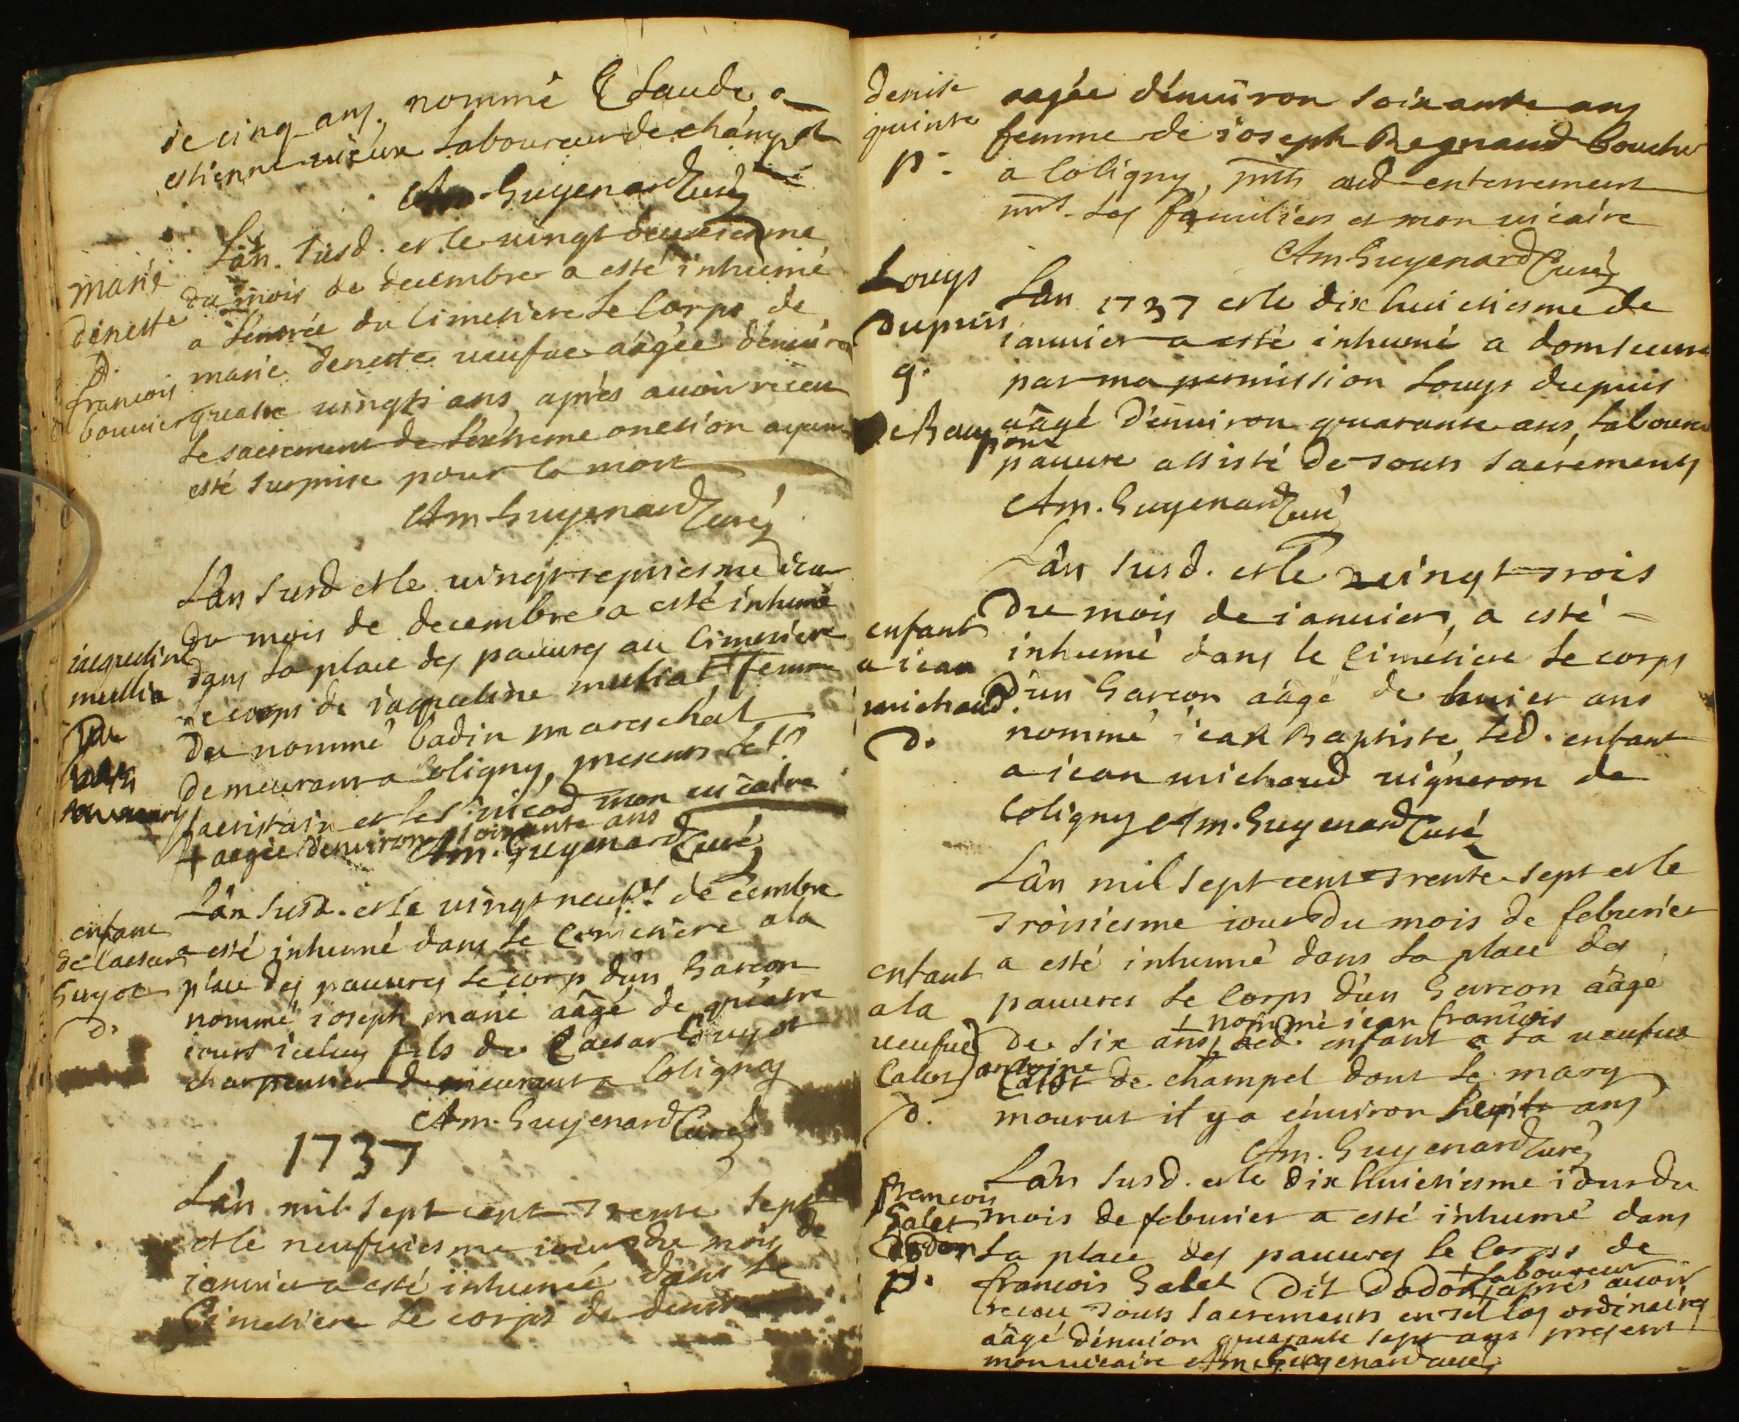 de cinq ans, nommé Claude, a
estienne vieux laboureur de champel
Am. Guyenard Curé
Lan susd. et le vingt deuxiesme
marie
denette
D.
francois
bouvier
du mois de decembre a esté inhumé
a lentrée du Cimetiere le Corps de
marie denette veufve aâgée dénviron
quatre vingts ans, aprés avoir receu
le sacrement de léxtreme onction ayant
esté surprise pour la mort
Am. Guyenard Curé
Lan susd et le vingt septiesme iour
iacqueline
mullia
du mois de decembre a esté inhumé
dans la place des pauvres au Cimetiere
le corps de iaqueline muliat + femme
du nommé badin mareschal
demeurant a Coligny, presents le Sr
sacristain et le Sr nicod mon vicaire
+ aagée denviron soixante ans
Am. Guyenard Curé
Lân susd. et le vingt neufe decembre
enfant
de Caesar
Guyot
D.
a esté inhumé dans le Cimetiere a la
place des pauvres le corps dûn Garcon
nommé ioseph marie aâgé de quatre
iours iceluy fils de Caesar Guyot
charpentier demeurant a Coligny
Am. Guyenard Curé
1737
Lân mil sept cent trente sept
et le neufviesme iour du mois de
ianvier a esté inhumée dans le
Cimetiere le corps de denise
denise
quinte
p.
aagée dénviron soixante ans
femme de ioseph Regnaud boucher
a Coligny, pnts aud enterrement
mrs. les familiers et mon vicaire
Am Guyenard Curé
Louys
Dupuis
g.
Lan 1737 et le dix huictiesme de
ianvier a esté inhumé a domseure
par ma permission Louys dupuis
aâgé dénviron quarante ans, laboureur
pauvre assisté de touts sacrements
Am. Guyenard Curé
Lân susd. et le vingt trois
enfant
a iean
michaud.
D.
du mois de ianvier, a esté
inhumé dans le Cimetiere le corps
dún Garcon aâgé de huict ans
nommé iean Baptiste, led. enfant
a iean michaud vigneron de
Coligny Am. Guyenard Curé
Lân mil sept cent trente sept et le
troisiesme iour du mois de febvrier
enfant
a la
veufve
Calet
D.
a esté inhumé dans la place des
pauvres le Corps dún Garcon aâgé
+ nommé iean francois
de six ans, + led. enfant a la veufve
antoine
Calet de champel dont le mary
mourut il y a énviron sept ans
Am. Guyenard Curé
Lân susd. et le dix huictiesme iour du
francois
Galet
dodon
p.
mois de febvrier a esté inhumé dans
la place des pauvres le Corps de
francois Galet dit dodon, + laboureur
aprés avoir
receu touts sacrements en tel cas ordinaires
aâgé dénviron quarante sept ans present
mon vicaire Am. Guyenard curé